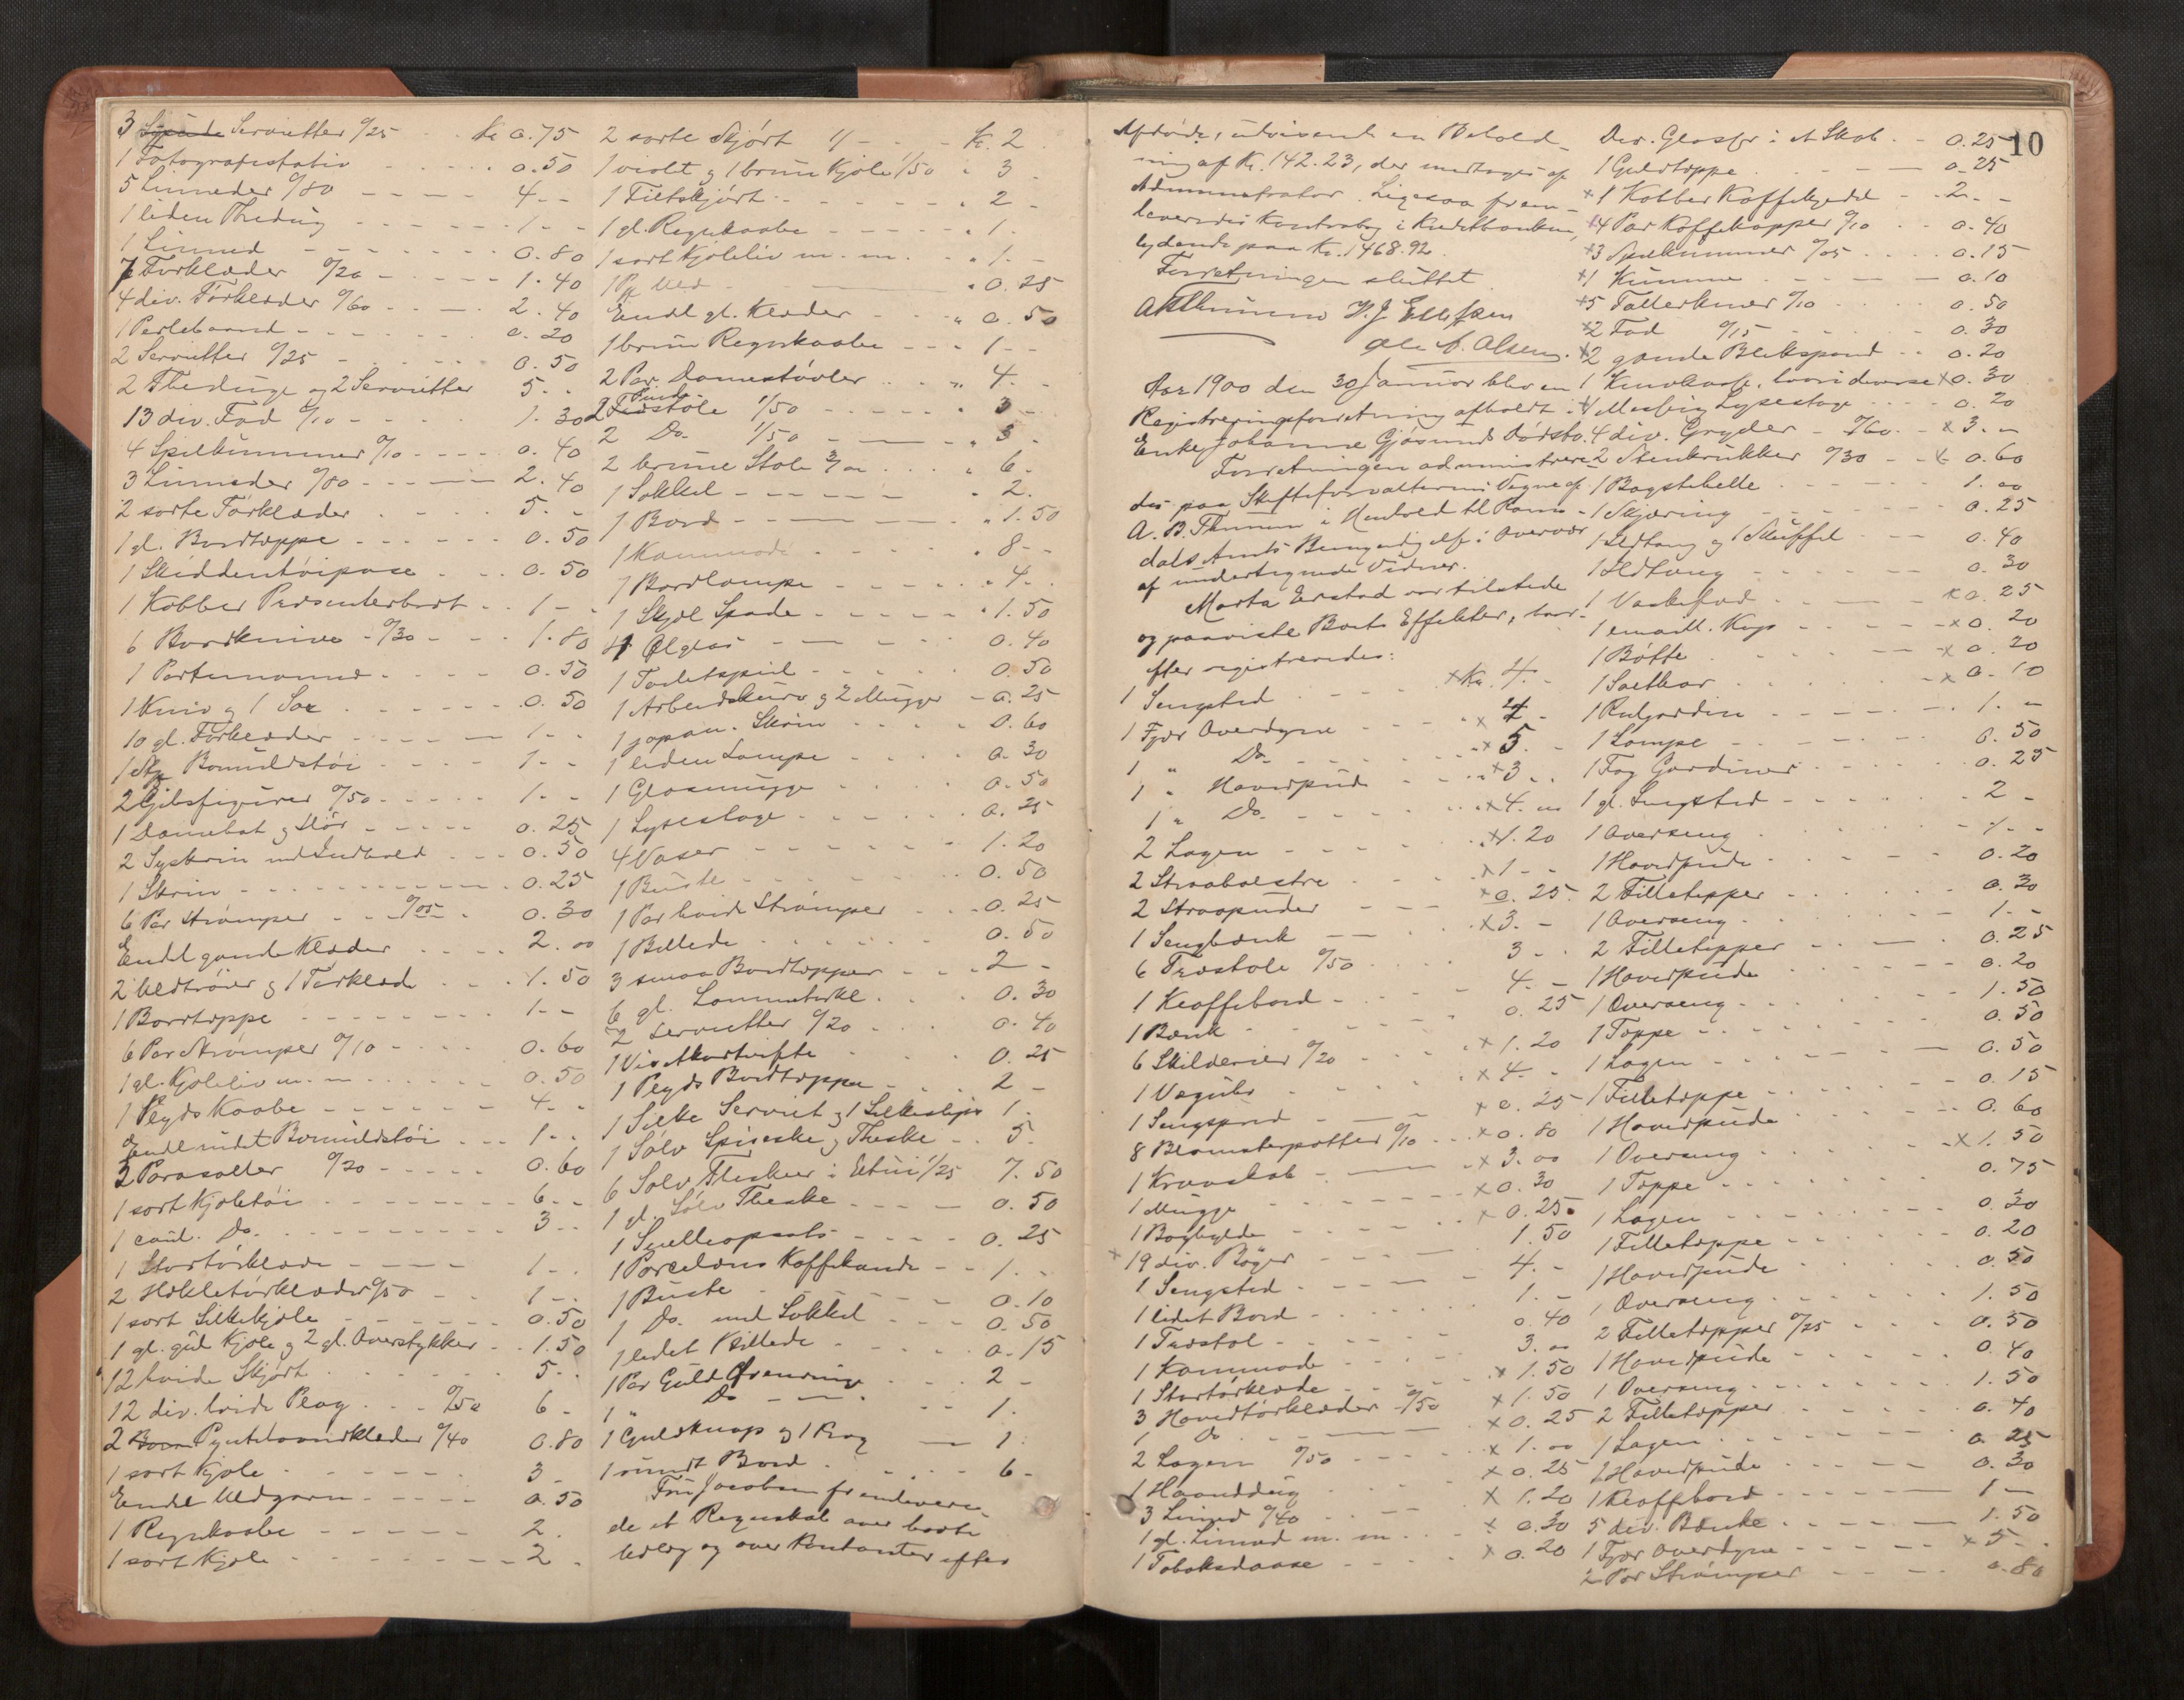 3 Servietter 0/25 - - kr 0.75
1 Fotografistativ - - - 0.50
5 Linneder 0/80 - - - 4 - -
1 liden Thedug - - - 1 - -
1 Linned - - - 0.80
7 Forklæder 0/20 - - - 1.40
4 div. Förklæder 0/60 - - - 2.40
1 Perlebaand - - - 0.20
2 Servietter 0/25 - - - 0.50
2 Theduge og 2 Servietter 5 - -
13 div. Fad 0/10 - - - 1.30
4 Spilkummer 0/10 - - - 0.40
3 Linneder 0/80 - - - 2.40
2 sorte Förklæder - - - 5 - -
1 gl. Bordtæppe - - - 0.50
1 Skiddentöipose - - - 0.50
1 Kobber Presenterbret - - 1 - -
6 Bordknive - 0/30 - - - 1.80
1 Portemonnæ - - - 0.50
1 Kniv og 1 Sax - - - 0.50
10 gl. Förklæder - - - 1 - -
1 Stk Bomuldstöi - - - 1 - -
2 Gibsfigurer 0/50 - - - 1 - -
1 Damehat og Slör - - - 0.25
2 Syskrin med Indhold - - - 0.50
1 Skrin - - - 0.25
6 Par Strömper - - 0/05 - 0.30
Endl gamle Klæder - - - 2.00
2 Uldtröier og 1 Forklæde - - - 1.50
1 Bordtæppe - - - 1 - -
6 Par Strömper 0/10 - - - 0.60
1 gl. Kjoleliv m. m. - - - 0.50
1 Plyds Kaabe - - - 4 - -
Endl Bomuldstöi - - - 1 - -
3 Parasoller 0/20 - - - 0.60
1 sort Kjoletöi - - - 6 - -
1 coul. Do. - - - 3 - -
1 Stortörklæde - - - 1 - -
2 Hekletörklæder 0/50 - - 1 - -
1 sort Silkekjole - - - 0.50
1 gl. gul Kjole og 2 gl. Overstykker - - 1.50
12 hvide Skjört - - - 5 - -
12 div. hvide Plag - - - 0/50 6 -
2 Pyntehaandklæder 0/40 0.80
1 sort Kjole - - - 3 -
Endel Uldgarn - - - 0.50
1 Regnkaabe - - - 2.
1 sort Kjole - - - 2 -
2 sorte Skjört 1/ - - - kr. 2
1 violet og 1 brun Kjole 1/50 " 3 -
1 Filtskjört - - - " 2 -
1 gl. Regnkaabe - - - " 1 -
1 sort Kjoleliv m. m. - - " 1 -
1 Uld - - - " 0.25
Endl gl. Klæder - - - " 0.50
1 brun Regnkaabe - - - 1 - -
2 Par Damestövler - - - " 4 - -
2 Træstole 1/50 - - - " 3 -
2 Do. 1/50 - - - " 3 -
2 brune Stole 3/00 - - - " 6 -
1 Sokkel - - - " 2.
1 Bord - - - " 1.50
1 Kommode - - - " 8 - -
1 Bordlampe - - - " 4 - -
1 Skjol Spade - - - " 1.50
4 Ølglas - - - 0.40
1 Toiletspeil - - - 0.50
1 Arbeidskurv og 2 Mugger - 0.25
1 japan. Skrin - - - 0.60
1 liden Lampe - - - 0.30
1 Glasmugge - - - 0.50
1 Lysestage - - - 0.25
4 Vaser - - - 1.20
1 Buste - - - 0.50
1 Par hvide Strömper - - - 0.25
1 Billede - - - 0.50
3 smaa Bordtæpper - - - 2 -
6 gl. Lommetörkl. - - - 0.30
2 Servietter 0/20 - - - 0.40
1 Visitkortvifte - - - 0.25
1 Plyds Bordtæppe - - - 2 -
1 Silke Serviet og 1 Silkeslips 1 -
1 Sölv Spiseske og Theske - - 5 -
6 Sölv Theskeer i Etui 1/25 7.50
1 gl. Sölv Theske - - - 0.50
1 Snelleopsats - - - 0.25
1 Porcelæns Kaffekande - - 1 -
1 Buste - - - 0.10
1 Do. med Sokkel - - - 0.50
1 lidet Billede - - - 0.15
1 Par Guld Örenringe - - - 2 -
1 " Do - - - 1.
1 Guldknap og 1 Krog - 1.
1 rundt Bord - - - 6 -
Fru Jacobsen fremleverede
de et Regnskab over havte
Udlæg og over Kontanter efter
10
Afdøde, udvisende en Behold-
ning af Kr. 142.23, der modtages af
Administrator. Ligesaa frem-
leveredes Kontrabog i Kreditbanken,
lydende paa Kr. 1468.92.
Forretningen sluttet.
ABThunem H. J. Ellefsen
Ole A. Olsen.
Aar 1900 den 30 Januar blev en
Registreringsforretning afholdt i
Enke Johanne Gjösunds Dödsbo.
Forretningen administrere-
des paa Skifteforvalterens Vegne af
A. B. Thunem i Henhold til Roms-
dals Amts Bemyndigelse i Overvær
af undertegnede Vidner.
Marta Erstad var tilstede
og paaviste Boets Effekter, hvor-
efter registreredes:
1 Sengsted - - - x Kr. 4 - -
1 Fjær Overdyne - - - x 4 -
1 " Do - - - x 5 -
1 " Hovedpude - - - x 3 - -
1 " Do. - - - x 4.00
2 Lagen - - - x 1.20
2 Straabolstre - - - x 1 - -
2 Straapuder - - - x 0.25
1 Sengbænk - - - x 3. -
6 Træstole 0/50 - - - 3 - -
1 Klaffebord - - - 4. -
1 Bænk - - - 0.25
6 Skilderier 0/20 - - - x 1.20
1 Væguhr - - - x 4 - -
1 Sengspred - - - x 0.25
8 Blomsterpotter 0/10 - - x 0.80
1 Kravskab - - - x 3.00
1 Mugge - - - x 0.30
1 Boghylde - - - x 0.25
x 19 div. Böger - - - 1.50
1 Sengsted - - - 4. -
1 lidet Bord - - - 1. -
1 Træstol - - - 0.40
1 Kommode - - - 3.00
1 Stortörklæde - - - x 1.50
3 Hovedtörklæder 0/50 x 1.50
1 Do - - - x 0.25
2 Lagen 0/50 - - - x 1.00
1 Haanddug - - - x 0.25
3 Linned 0/40 - - - x 1.20
1 gl. Linned m. m. - - - x 0.30
1 Tobaksdaase - - - x 0.20
Div. Glassfr i et Skab. - 0.25
1 Gulvtæppe - - - 0.25
x 1 Kobber Kaffekjedel - - 2. - -
x 4 Par Kaffekopper 0/10 - - 0.40
x 3 Spilkummer 0/05 - - - 0.15
x 1 Kumme - - - 0.10
x 5 Tallerkner 0/10 - - - 0.50
x 2 Fad 0/15 - - - 0.30
x 2 gamle Blikspand - - 0.20
1 Knivkurv, hvori diverse x 0.30
1 Messing Lysestage - - - 0.20
4 div. Gryder - 0/60 - x 3. -
2 Stenkrukker 0/30 - - x 0.60
1 Bagstehelle - - - 1.00
1 Skjæring - - - 0.25
1 Ildtang og 1 Skuffel - - - 0.40
1 Ildtang - - - 0.30
1 Vaskefad - - - x 0.25
1 emaill. Kop - - - x 0.20
1 Bötte - - - x 0.20
1 Saltkar - - - x 0.10
1 Rulgardin - - - 1. -
1 Lampe - - - 0.50
1 Fag Gardiner - - - 0.25
1 gl. Sengsted - - - 2 -
1 Overseng - - - 1 - -
1 Hovedpude - - - 0.20
2 Filletepper - - - 0.30
1 Overseng - - - 1 - -
2 Filletepper - - - 0.25
1 Hovedpude - - - 0.20
1 Overseng - - - 1.50
1 Tæppe - - - 0.50
1 Lagen - - - 0.50
1 Filletæppe - - - 0.15
1 Hovedpude - - - 0.60
1 Overseng - - - x 1.50
1 Tæppe - - - 0.75
1 Lagen - - - 0.30
1 Filletæppe - - - 0.20
1 Hovedpude - - - 0.50
1 Overseng - - - 1.50
2 Filletæpper 0/25 - - - 0.50
1 Hovedpude - - - 0.40
1 Overseng - - - 1.50
2 Filletæpper - - - 0.40
1 Lagen - - - 0.25
1 Hovedpude - - - 0.30
1 Klaffebord - - - 1 -
5 div. Bænke - - - 1.50
1 Fjær Overdyne - - - x 5 - -
2 Par Strömper - - - 0.80